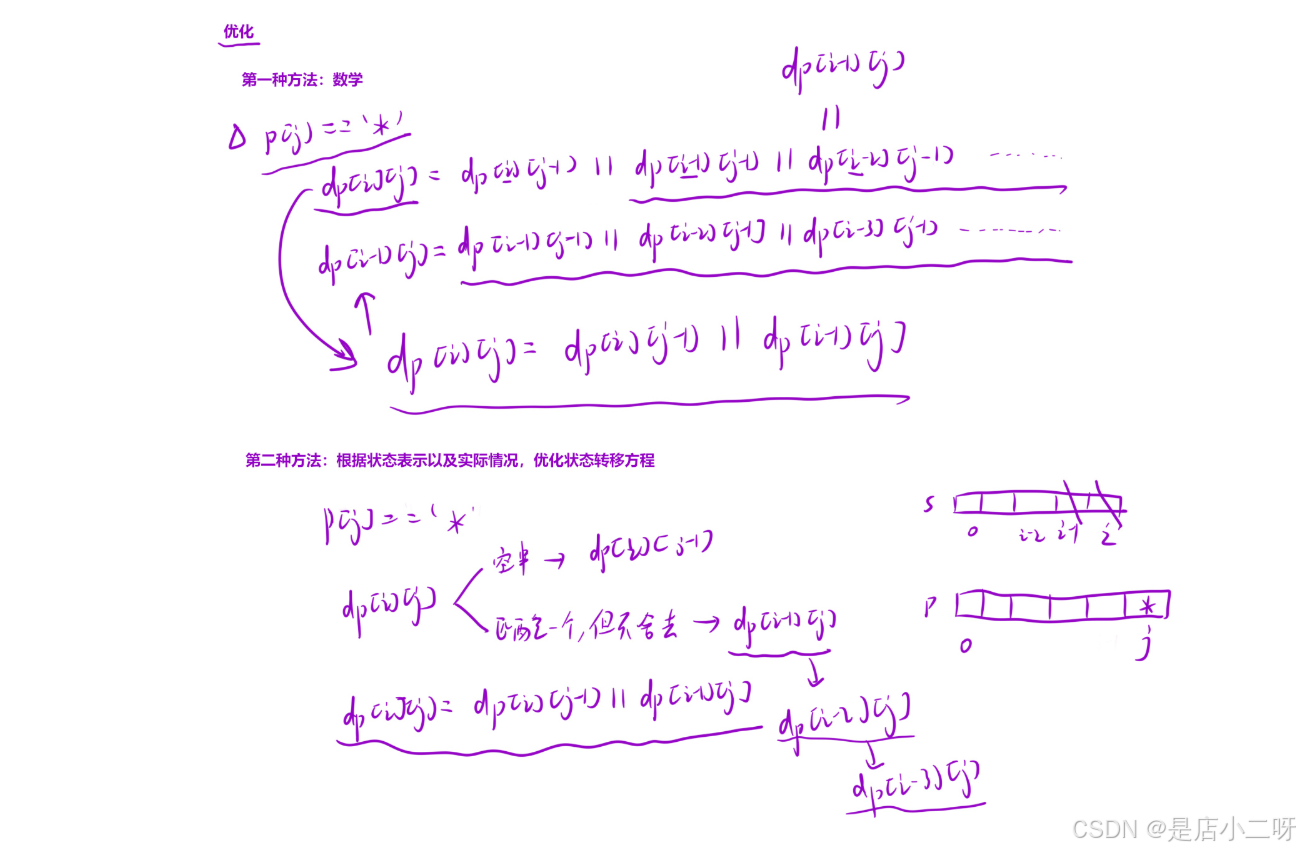 优化
第一种方法：数学
dp[i-1][j]
||
△ p[j] == '*'
dp[i][j] = dp[i][j-1] || dp[i-1][j-1] || dp[i-2][j-1] ......
dp[i-1][j] = dp[i-1][j-1] || dp[i-2][j-1] || dp[i-3][j-1] ......
dp[i][j] = dp[i][j-1] || dp[i-1][j]
第二种方法：根据状态表示以及实际情况，优化状态转移方程
p[j] == '*'
s
0 i-2 i-1 i
空串 → dp[i][j-1]
dp[i][j]
匹配一个，但不舍去 → dp[i-1][j]
p *
0 j
dp[i][j] = dp[i][j-1] || dp[i-1][j]
dp[i-2][j]
dp[i-3][j]
CSDN @是店小二呀